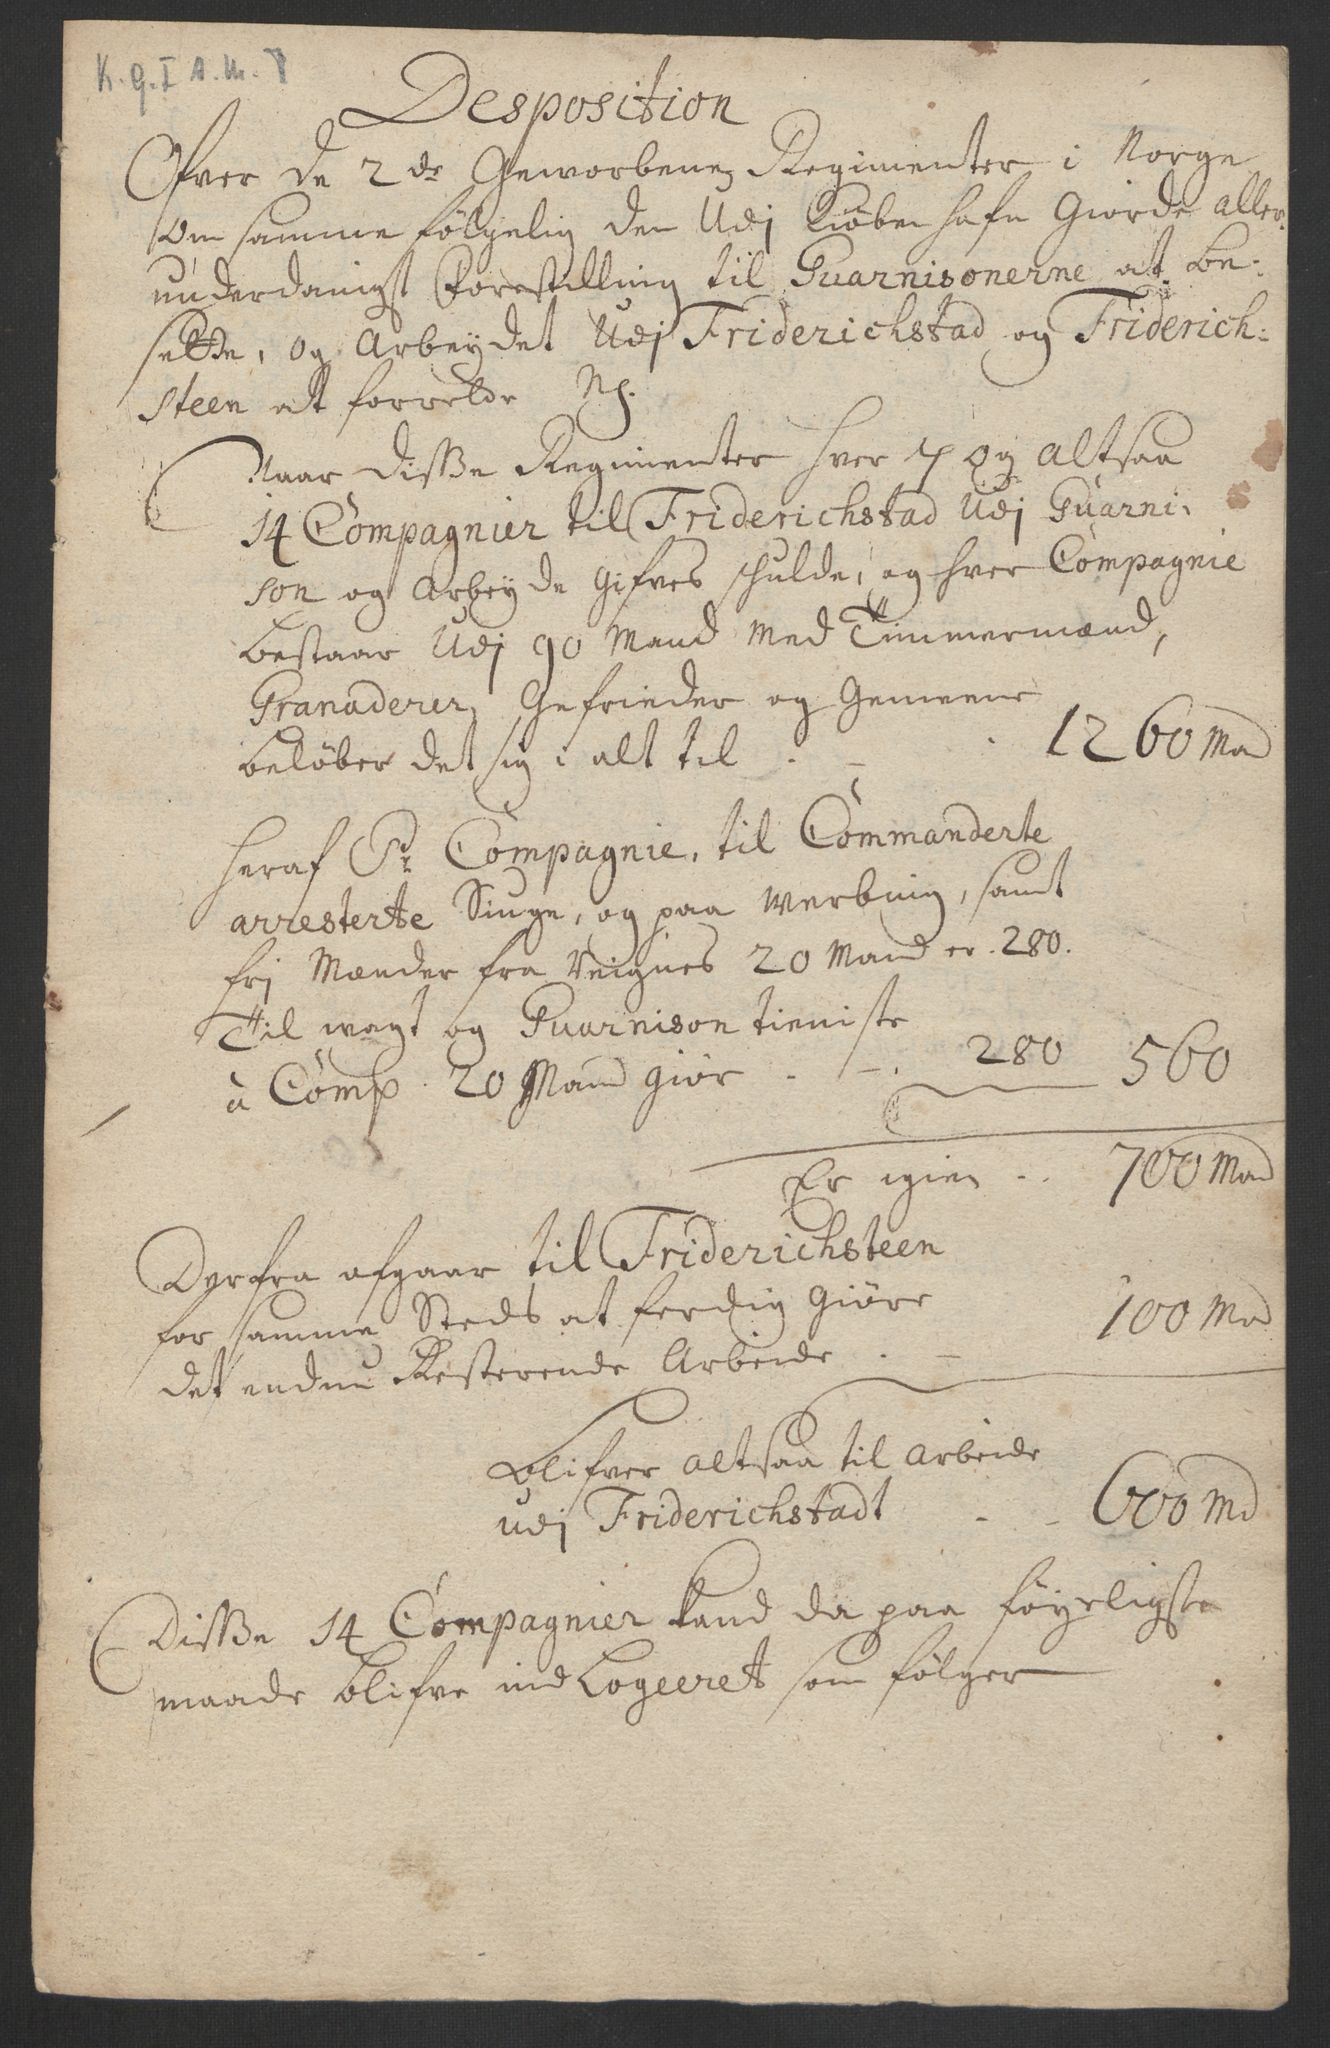 K. g. I A. M. 8
Desposition
Ofver de 2de Geworbene Regimenter i Norge
om samme følgelig den Udj Kiøbenhafn Giorde aller-
underdanigst Forestilling til Guarnisonerne at be-
sette, og Arbeydet Udj Friderichstad og Friderich-
steen at forrette
Naar disse Regimenter hver 7 og altsaa
14 Compagnier til Friderichstad Udj Guarni-
son og Arbeyde gifves schulde, og hver Compagnie
bestaar Udj 90 Mand Med Timmermænd,
Granaderer, Gefrieder og Gemeene
beløber det sig i alt til . - . 1260 Mad
Heraf Pr Compagnie, til Commanderte
arresterte Siuge, og paa Werbing, samt
frj Mænder fra Reignes 20 Mand er . 280.
Til wagt og Guarnison tieniste
à Comp. 20 Mand giør . - . 280 560
Er igien . . 700 Mand
Derfra afgaar til Friderichsteen
for samme Steds at ferdig Giøre
det endnu Resterende Arbeide . - 100 Md
blifver altsaa til Arbeide
udj Friderichstadt - - 600 Md
Disse 14 Compagnier kand da paa føyeligste
maade blifve ind Logeeret som følger